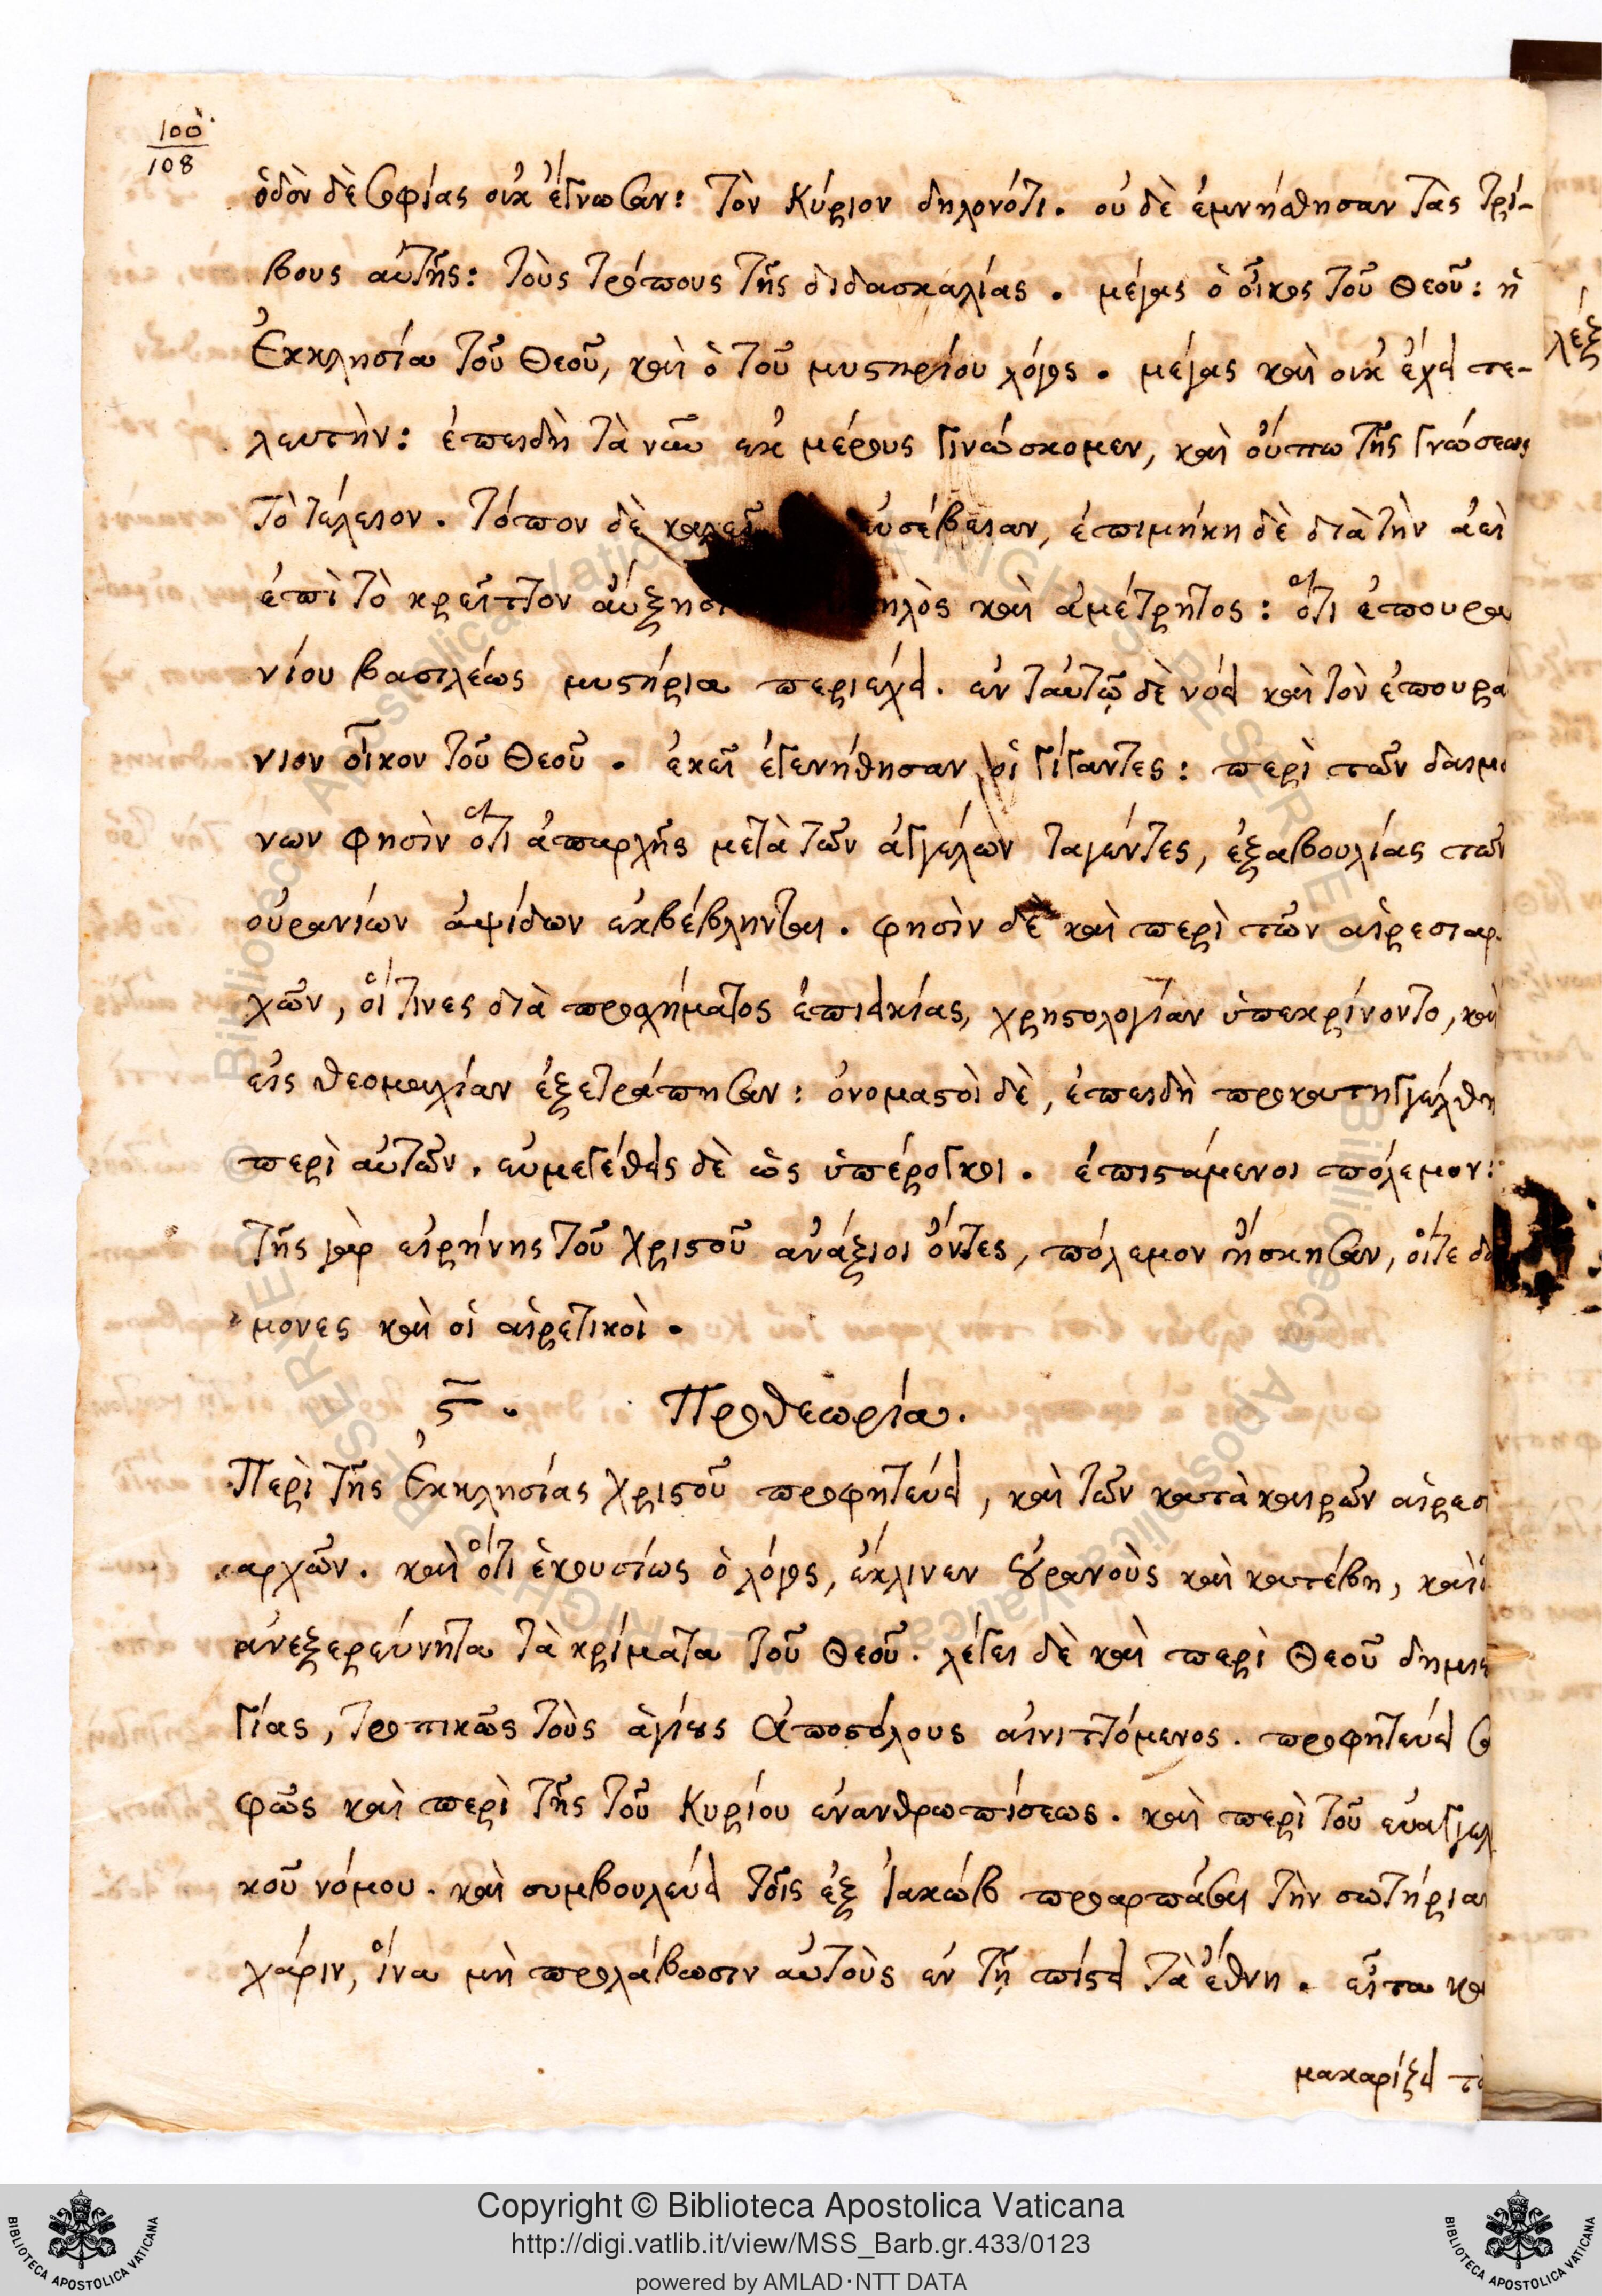 100
108
ὁδὸν δὲ σοφίας οὐκ ἔγνωσαν: τὸν Κύριον δηλονότι. οὐδὲ ἐμνήσθησαν τὰς τρί-
βους αὐτῆς: τοὺς τρόπους τῆς διδασκαλίας. μέγας ὁ οἶκος τοῦ Θεοῦ: ἡ
Ἐκκλησία τοῦ Θεοῦ, καὶ ὁ τοῦ μυστηρίου λόγος. μέγας καὶ οὐκ ἔχει τε-
λευτὴν: ἐπειδὴ τὰ νῦν ἐκ μέρους γινώσκομεν, καὶ οὔπω τῆς γνώσεως
τὸ τέλειον. τόπον δὲ καλεῖ εὐσέβειαν, ἐπιμήκη δὲ διὰ τὴν ἀεὶ
ἐπὶ τὸ κρεῖττον αὔξησι ηλὸς καὶ ἀμέτρητος: ὅτι ἐπουρα
νίου βασιλέως μυστήρια περιέχει. ἐν ταὐτῷ δὲ νόει καὶ τὸν ἐπουρά
νιον οἶκον τοῦ Θεοῦ. ἐκεῖ ἐγενήθησαν οἱ γίγαντες: περὶ τῶν δαιμό
νων φησὶν ὅτι ἀπαρχῆς μετὰ τῶν ἀγγέλων ταγέντες, ἐξαβουλίας τῶν
οὐρανίων ἁψίδων ἐκβέβληνται. φησὶν δὲ καὶ περὶ τῶν αἱρεσιαρ
χῶν, οἵ τινες διὰ προσχήματος ἐπιεικίας, χρηστολογίαν ὑπεκρίνοντο, καὶ
εἰς θεομαχίαν ἐξετράπησαν: ὀνομαστοὶ δὲ, ἐπειδὴ προκατηγγέλθη
περὶ αὐτῶν. εὐμεγέθεις δὲ ὡς ὑπέρογκοι. ἐπιστάμενοι πόλεμον:
τῆς γὰρ εἰρήνης τοῦ Χριστοῦ ἀνάξιοι ὄντες, πόλεμον ἤσκησαν, οἵτε δαί
μονες καὶ οἱ αἱρετικοὶ.
ϛ. Προθεωρία.
Περὶ τῆς Ἐκκλησίας Χριστοῦ προφητεύει, καὶ τῶν κατὰ καιρῶν αἱρεσι
αρχῶν. καὶ ὅτι ἑκουσίως ὁ λόγος, ἔκλινεν οὐρανοὺς καὶ κατέβη, καὶ
ἀνεξερεύνητα τὰ κρίματα τοῦ Θεοῦ. λέγει δὲ καὶ περὶ Θεοῦ δημιου
γίας, τροπικῶς τοὺς ἁγίους Ἀποστόλους αἰνιττόμενος. προφητεύει σα
φῶς καὶ περὶ τῆς τοῦ Κυρίου ἐνανθρωπίσεως. καὶ περὶ τοῦ εὐαγγελ
κοῦ νόμου. καὶ συμβουλεύει τοῖς ἐξ Ἰακώβ προαρπάσαι τὴν σωτήριαν
χάριν, ἵνα μὴ προλάβωσιν αὐτοὺς ἐν τῇ πίστει τὰ ἔθνη. εἶτα κα
μακαρίζει τὸ
λέξ
Copyright © Biblioteca Apostolica Vaticana
http://digi.vatlib.it/view/MSS_Barb.gr.433/0123
powered by AMLAD·NTT DATA
BIBLIOTECA APOSTOLICA VATICANA
BIBLIOTECA APOSTOLICA VATICANA